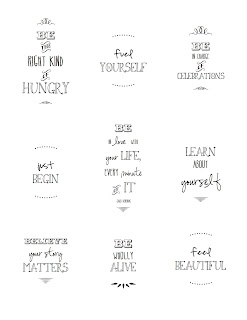 BE
THE
RIGHT KIND
OF
HUNGRY
fuel
YOURSELF
BE
IN CHARGE
OF
CELEBRATIONS
just
BEGIN
BE
in love with
your LIFE,
EVERY minute
OF
IT
LEARN
ABOUT
yourself
BELIEVE
your story
MATTERS
BE
WHOLLY
ALIVE
feel
BEAUTIFUL